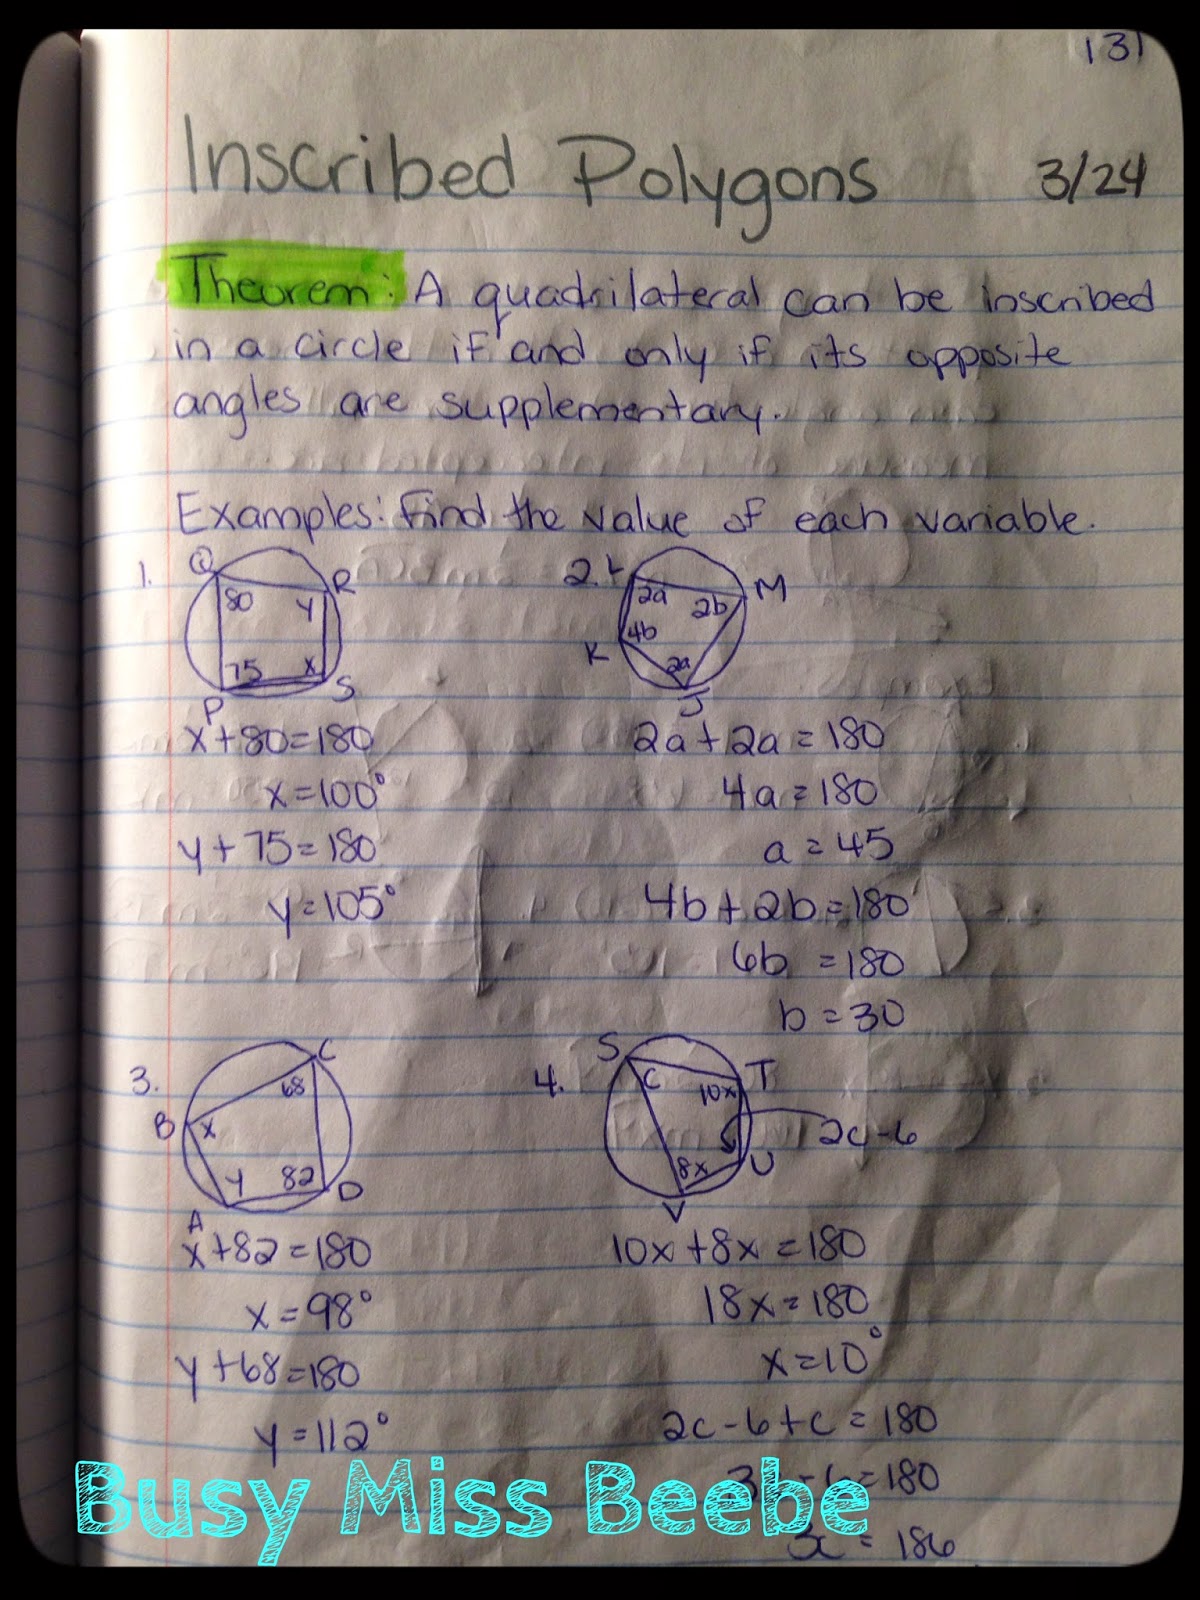 131
Inscribed Polygons 3/24
Theorem: A quadrilateral can be inscribed
in a circle if and only if its opposite
angles are supplementary.
Examples: Find the value of each variable.
1.
Q
R
80
y
75
x
P
S
x+80=180
x=100°
y+75=180
y=105°
2.
L
M
2a
2b
4b
K
2a
J
2a+2a=180
4a=180
a=45
4b+2b=180
6b =180
b=30
3.
C
68
B
x
y
82
D
A
x+82=180
x=98°
y+68=180
y=112°
4.
S
T
c
10x
2c-6
8x
U
V
10x+8x=180
18x=180
x=10°
2c-6+c=180
3 -6=180
3c= 186
Busy Miss Beebe